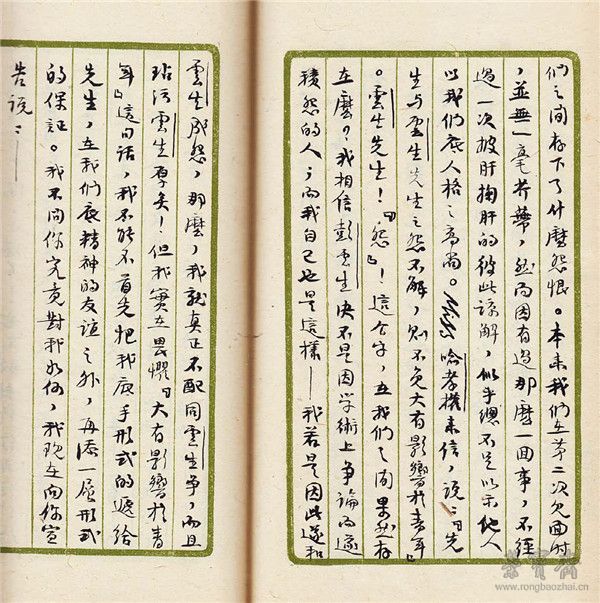 们之间存下了什麼怨恨。本来我们在第二次見面时
，並無一毫芥蒂，然而因有過那麼一囬事，不经
過一次披肝掬肝的彼此諒解，似乎總不足以示他人
以我们底人格之高尚。喻孝權来信，説：「先
生与雲生先生之怨不解，则不免大有影響於青年」
。雲生先生！「怨」！這个字，在我们之间果然存
在麼？我相信彭雲生决不是因学術上争論而遂
積怨的人；而我自己也是這樣——我若是因此遂和
雲生成怨，那麼，我就真正不配同雲生争，而且
玷污雲生厚矣！但我實在畏懼「大有影響於青
年」這句话，我不能不首先把我底手形式的遞给
先生，在我们底精神的友谊之外，再添一層形式
的保証。我不问你究竟對我如何，我现在向你宣
告説：——
荣寶齋
www.rongbaozhai.cn